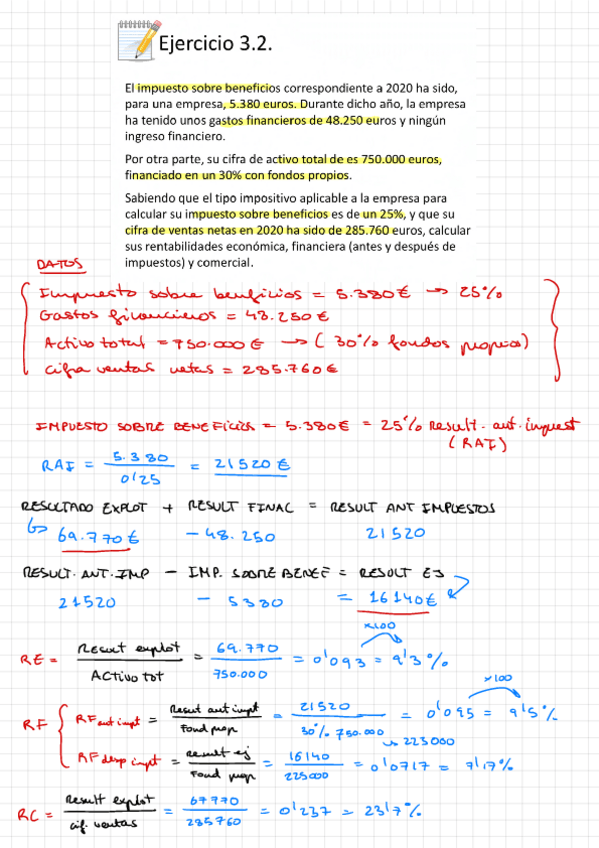 Ejercicio 3.2.
El impuesto sobre beneficios correspondiente a 2020 ha sido,
para una empresa, 5.380 euros. Durante dicho año, la empresa
ha tenido unos gastos financieros de 48.250 euros y ningún
ingreso financiero.
Por otra parte, su cifra de activo total de es 750.000 euros,
financiado en un 30% con fondos propios.
Sabiendo que el tipo impositivo aplicable a la empresa para
calcular su impuesto sobre beneficios es de un 25%, y que su
cifra de ventas netas en 2020 ha sido de 285.760 euros, calcular
sus rentabilidades económica, financiera (antes y después de
impuestos) y comercial.
DATOS
Impuesto sobre beneficios = 5.380€ → 25%
Gastos financieros = 48.250€
Activo total = 750.000€ → (30% fondos propios)
Cifra ventas netas = 285.760€
IMPUESTO SOBRE BENEFICIOS = 5.380€ = 25% Result. ant. impuest
(RAI)
RAI = 5.380 / 0'25 = 21520€
RESULTADO EXPLOT + RESULT FINAC = RESULT ANT IMPUESTOS
↳ 69.770€ - 48.250 21520
RESULT. ANT. IMP - IMP. SOBRE BENEF = RESULT EJ
21520 - 5380 = 16140€
x100
RE = Result explot / Activo tot = 69.770 / 750.000 = 0'093 = 9'3%
x100
RF { RF ant impt = Result ant impt / Fond prop = 21520 / 30% 750.000 = 0'095 = 9'5%
↳ 225000
RF desp impt = result ej / Fond prop = 16140 / 225000 = 0'0717 = 7'17%
RC = Result explot / cif. ventas = 67770 / 285760 = 0'237 = 23'7%